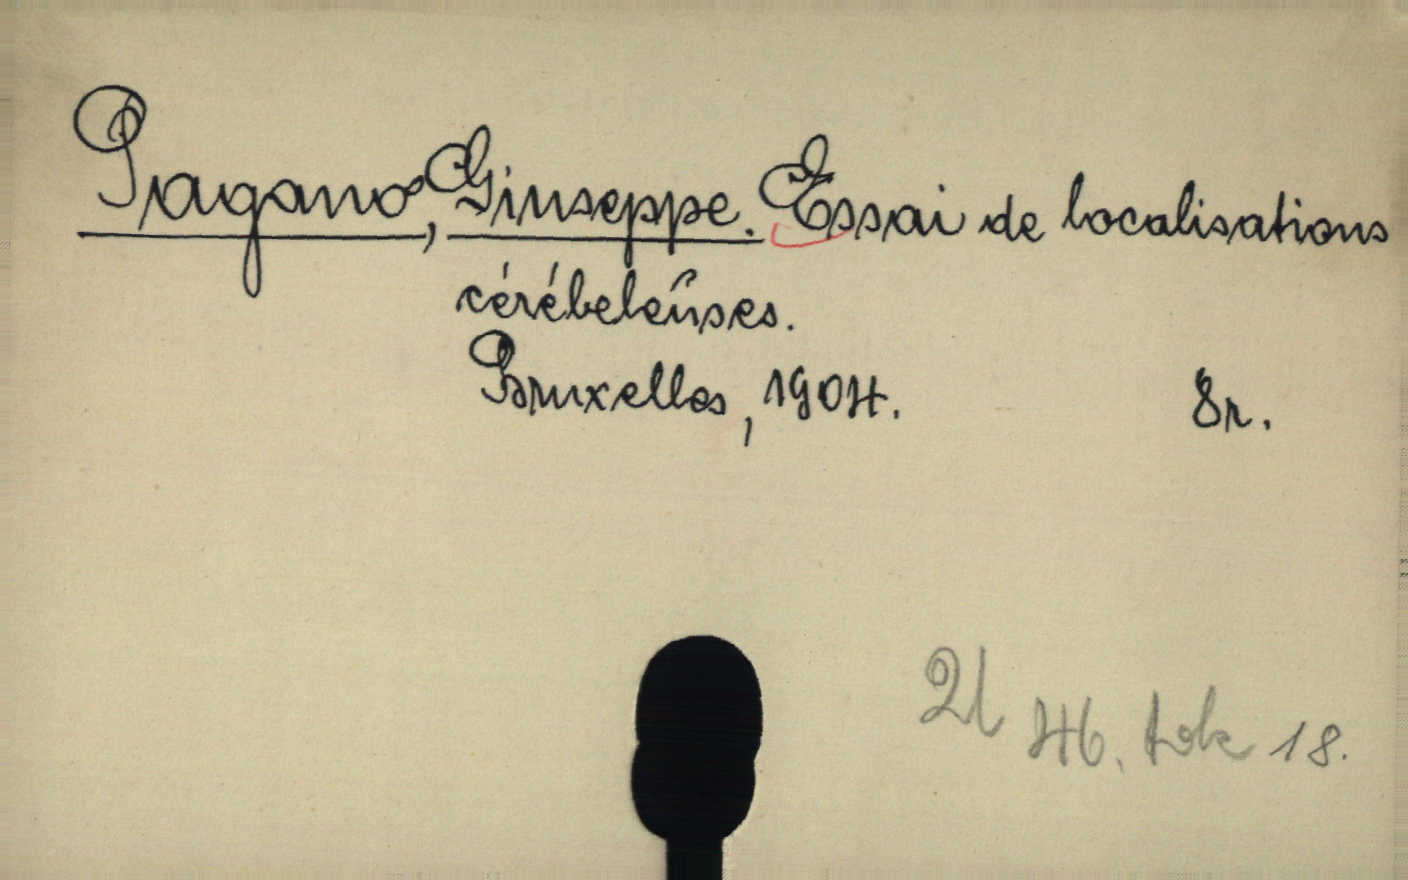 Pagano, Giuseppe. Essai de localisations
cérébeleuses.
Bruxelles, 1904. 8r.
46. tok 18.